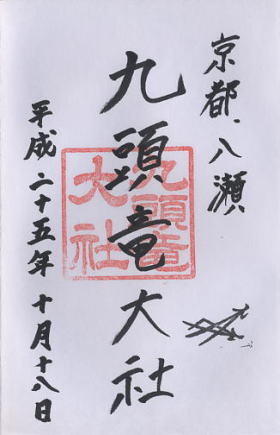 京都・八瀬
九頭竜大社
平成二十五年 十月十八日
九頭竜
大社